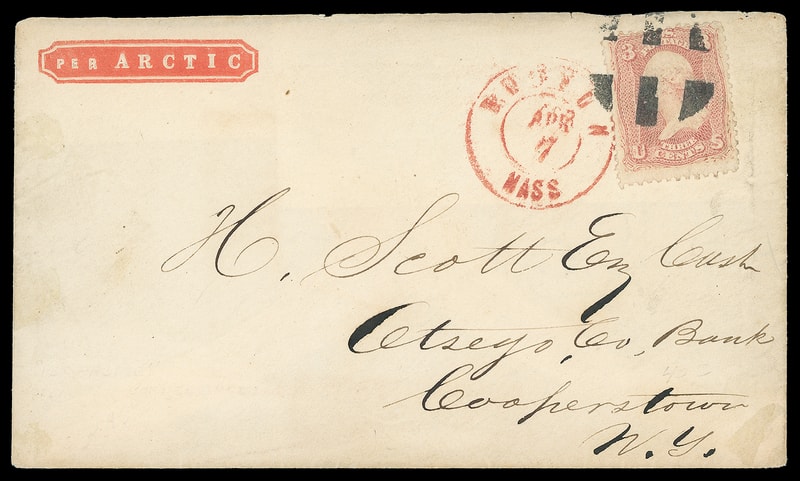 PER ARCTIC
BOSTON
APR
7
MASS
3 3
U S
THREE CENTS
H. Scott Esq Cash
Otsego, Co, Bank
Cooperstown
N.Y.